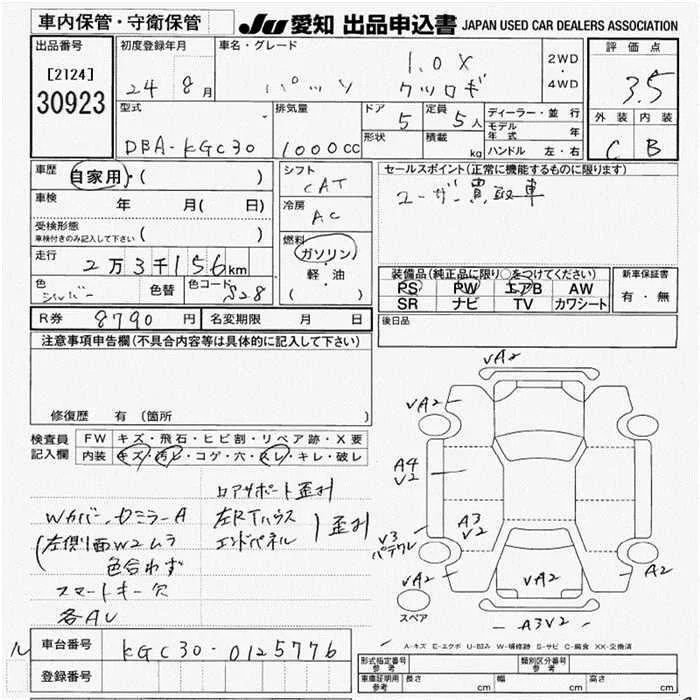 車内保管・守衛保管
JU 愛知 出品申込書 JAPAN USED CAR DEALERS ASSOCIATION
出品番号
[2124]
30923
初度登録年月
24 8月
車名・グレード
1.0X
パッソ クツロギ
2WD
・
4WD
評価点
3.5
外装 内装
C B
型式
DBA-KGC30
排気量
1000cc
ドア
5
定員
5人
形状
積載
kg
ディーラー・並行
モデル年式 年
ハンドル 左・右
車歴
自家用・( )
車検
年 月( 日)
受検形態
車検付きのみ記入して下さい ( )
走行
2万3千156km
色
シルバー
色替
色コード
S28
シフト
CAT
冷房
AC
燃料
ガソリン
・
軽・油
( )
セールスポイント(正常に機能するものに限ります)
ユーザー買取車
装備品(純正品に限り○をつけてください)
PS PW エアB AW
SR ナビ TV カワシート
新車保証書
有・無
R券 8790円
名変期限 月 日
後日品
注意事項申告欄(不具合内容等は具体的に記入して下さい)
修復歴 有(箇所 )
検査員記入欄
FW キズ・飛石・ヒビ割・リペア跡・X要
内装 キズ・汚レ・コゲ・穴・スレ・キレ・破レ
ロアサポート歪み
Wカバー、ドミラーA
左RTハウス
エンドパネル
}歪み
(左側面W2ムラ
色合わず
スマートキー欠
各AU
VA2
VA2
VA2
A4
V2
A3
V2
V3
パテワレ
VA2
VA2
A2
A3V2
スペア
A-キズ E-エクボ U-凹み W-補修跡 S-サビ C-腐食 XX-交換済
ル
車台番号 KGC30-0125776
登録番号
形式指定番号
参考
類別区分番号
参考
車庫証明用
参考
長さ cm
幅 cm
高さ cm